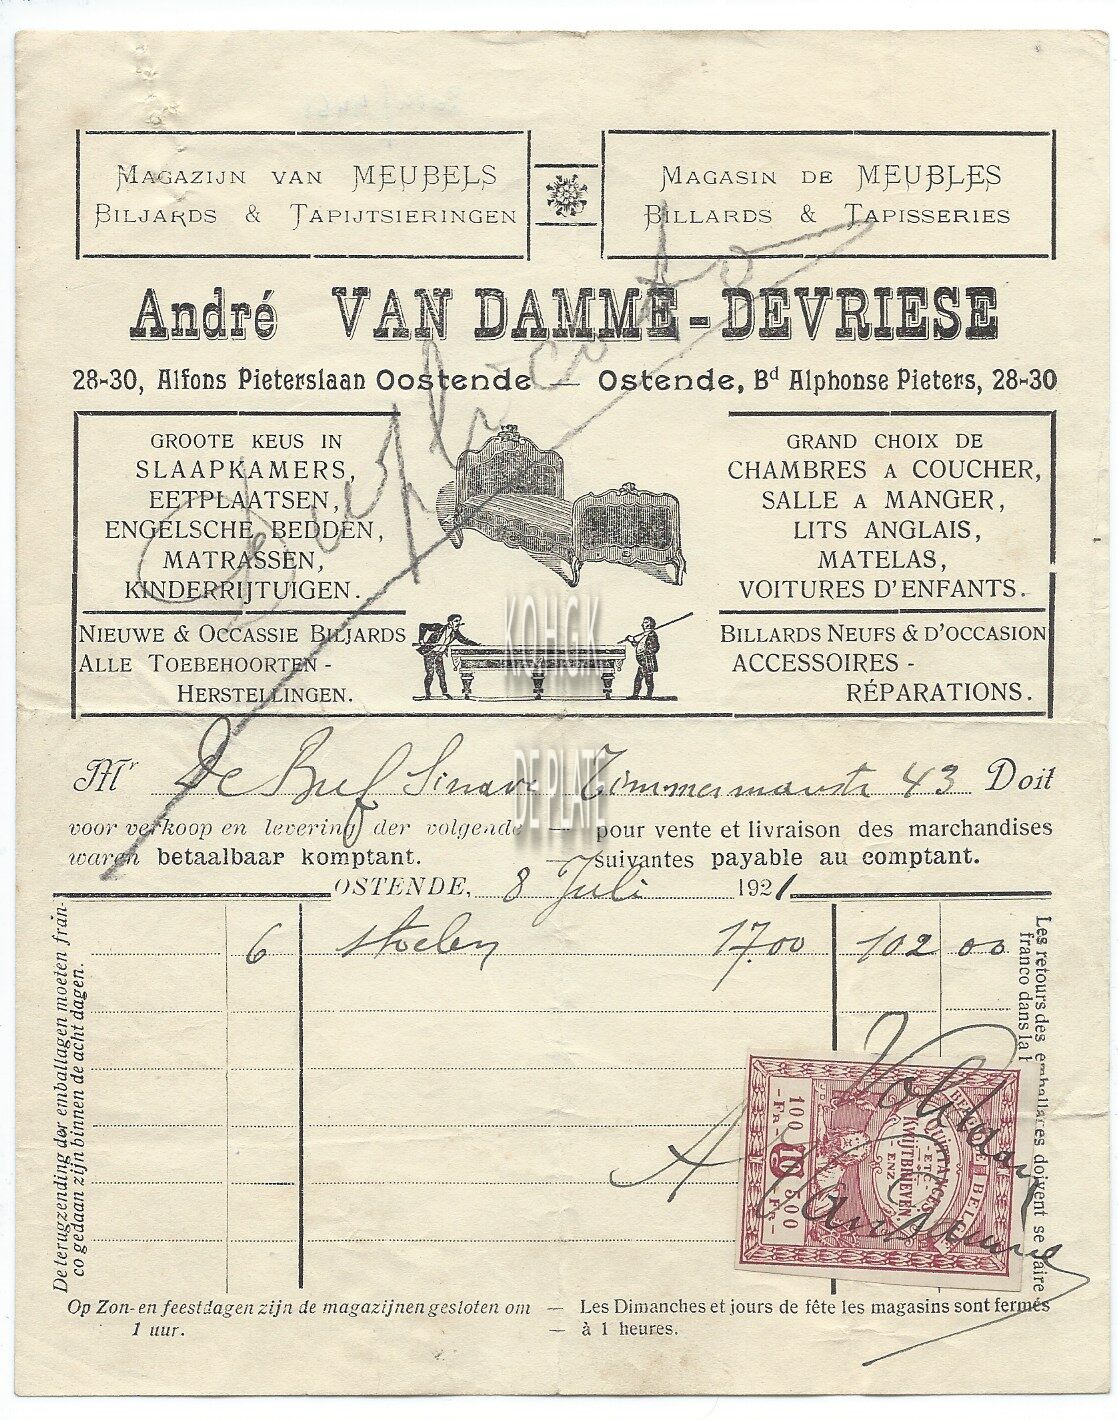 MAGAZIJN VAN MEUBELS
BILJARDS & TAPIJTSIERINGEN
MAGASIN DE MEUBLES
BILLARDS & TAPISSERIES
André VAN DAMME-DEVRIESE
28-30, Alfons Pieterslaan Oostende — Ostende, Bd Alphonse Pieters, 28-30
GROOTE KEUS IN
SLAAPKAMERS,
EETPLAATSEN,
ENGELSCHE BEDDEN,
MATRASSEN,
KINDERRIJTUIGEN.
GRAND CHOIX DE
CHAMBRES A COUCHER,
SALLE A MANGER,
LITS ANGLAIS,
MATELAS,
VOITURES D'ENFANTS.
NIEUWE & OCCASSIE BILJARDS
ALLE TOEBEHOORTEN -
HERSTELLINGEN.
BILLARDS NEUFS & D'OCCASION
ACCESSOIRES -
RÉPARATIONS.
KOHGK
DE PLATE
Mr De Buf Doit
43
voor verkoop en levering der volgende — pour vente et livraison des marchandises
waren betaalbaar komptant. — suivantes payable au comptant.
OSTENDE, 8 Juli 1921
6 stoelen 17.00 102 00
De terugzending der emballagen moeten fran-
co gedaan zijn binnen de acht dagen.
Les retours des emballages doivent se faire
franco dans la
BELGIQUE BELGIË
QUITTANCES
- ETC -
KWIJTBRIEVEN
- ENZ -
100 10 500
- Fr - - Fr -
Voldaan
A VanDamme
Op Zon- en feestdagen zijn de magazijnen gesloten om — Les Dimanches et jours de fête les magasins sont fermés
1 uur. — à 1 heures.